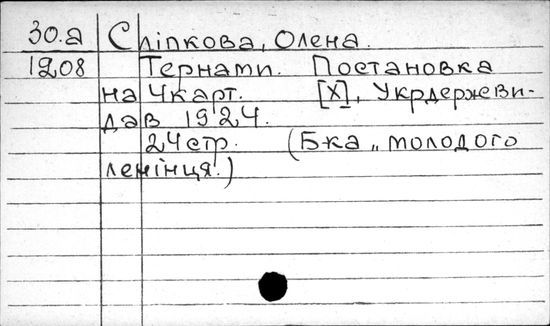 30.а Сліпкова, Олена.
1208 Тернами. Постановка
на 4 карт. [Х], Укрдержви-
дав 1924.
24 стр. (Б-ка „молодого
ленінця.)